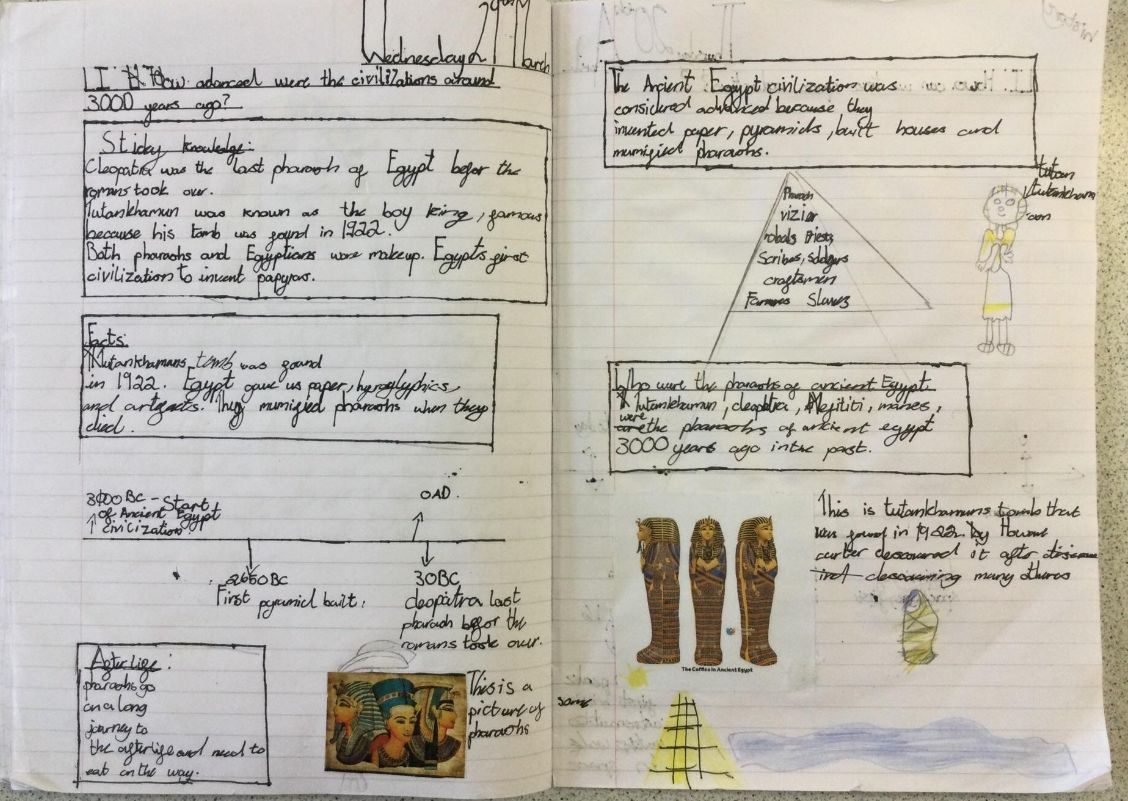 Wednesday 29th March
How advanced were the civilizations around
3000 years ago?
Sticky knowledge:
Cleopatra was the last pharaoh of Egypt befor the
romans took over.
Tutankhamun was known as the boy king, famous
because his tomb was found in 1922.
Both pharaohs and Egyptians wore makeup. Egypts first
civilization to invent papyras.
Facts:
Tutankhamans tomb was found
in 1922. Egypt gave us paper, hyroglyphics,
and artifacts. They mumified pharaohs when they
died.
3100BC - Start
of Ancient Egypt
civilization.
0AD.
2650BC
First pyramid built.
30BC
cleopatra last
pharaoh befor the
romans took over.
Afterlife:
pharaohs go
on a long
journey to
the afterlife and need to
eat on the way.
This is a
picture of
pharaohs
The Ancient Egypt civilization was
considered advanced because they
invented paper, pyramids, built houses and
mumified pharaohs.
Pharaoh
vizier
nobals Priests
Scribes, Soldgers
craftsmen
Farmers Slaves
tutan
tutankham
oon
Who were the pharaohs of ancient Egypt
Tutankhamun, cleopatra, Nefititi, manes,
were
are the pharaohs of ancient egypt
3000 years ago in the past.
The Coffins In Ancient Egypt
This is tutankhamuns tomb that
was found in 1922 by Howard
carter descovered it after
descovering many others
some